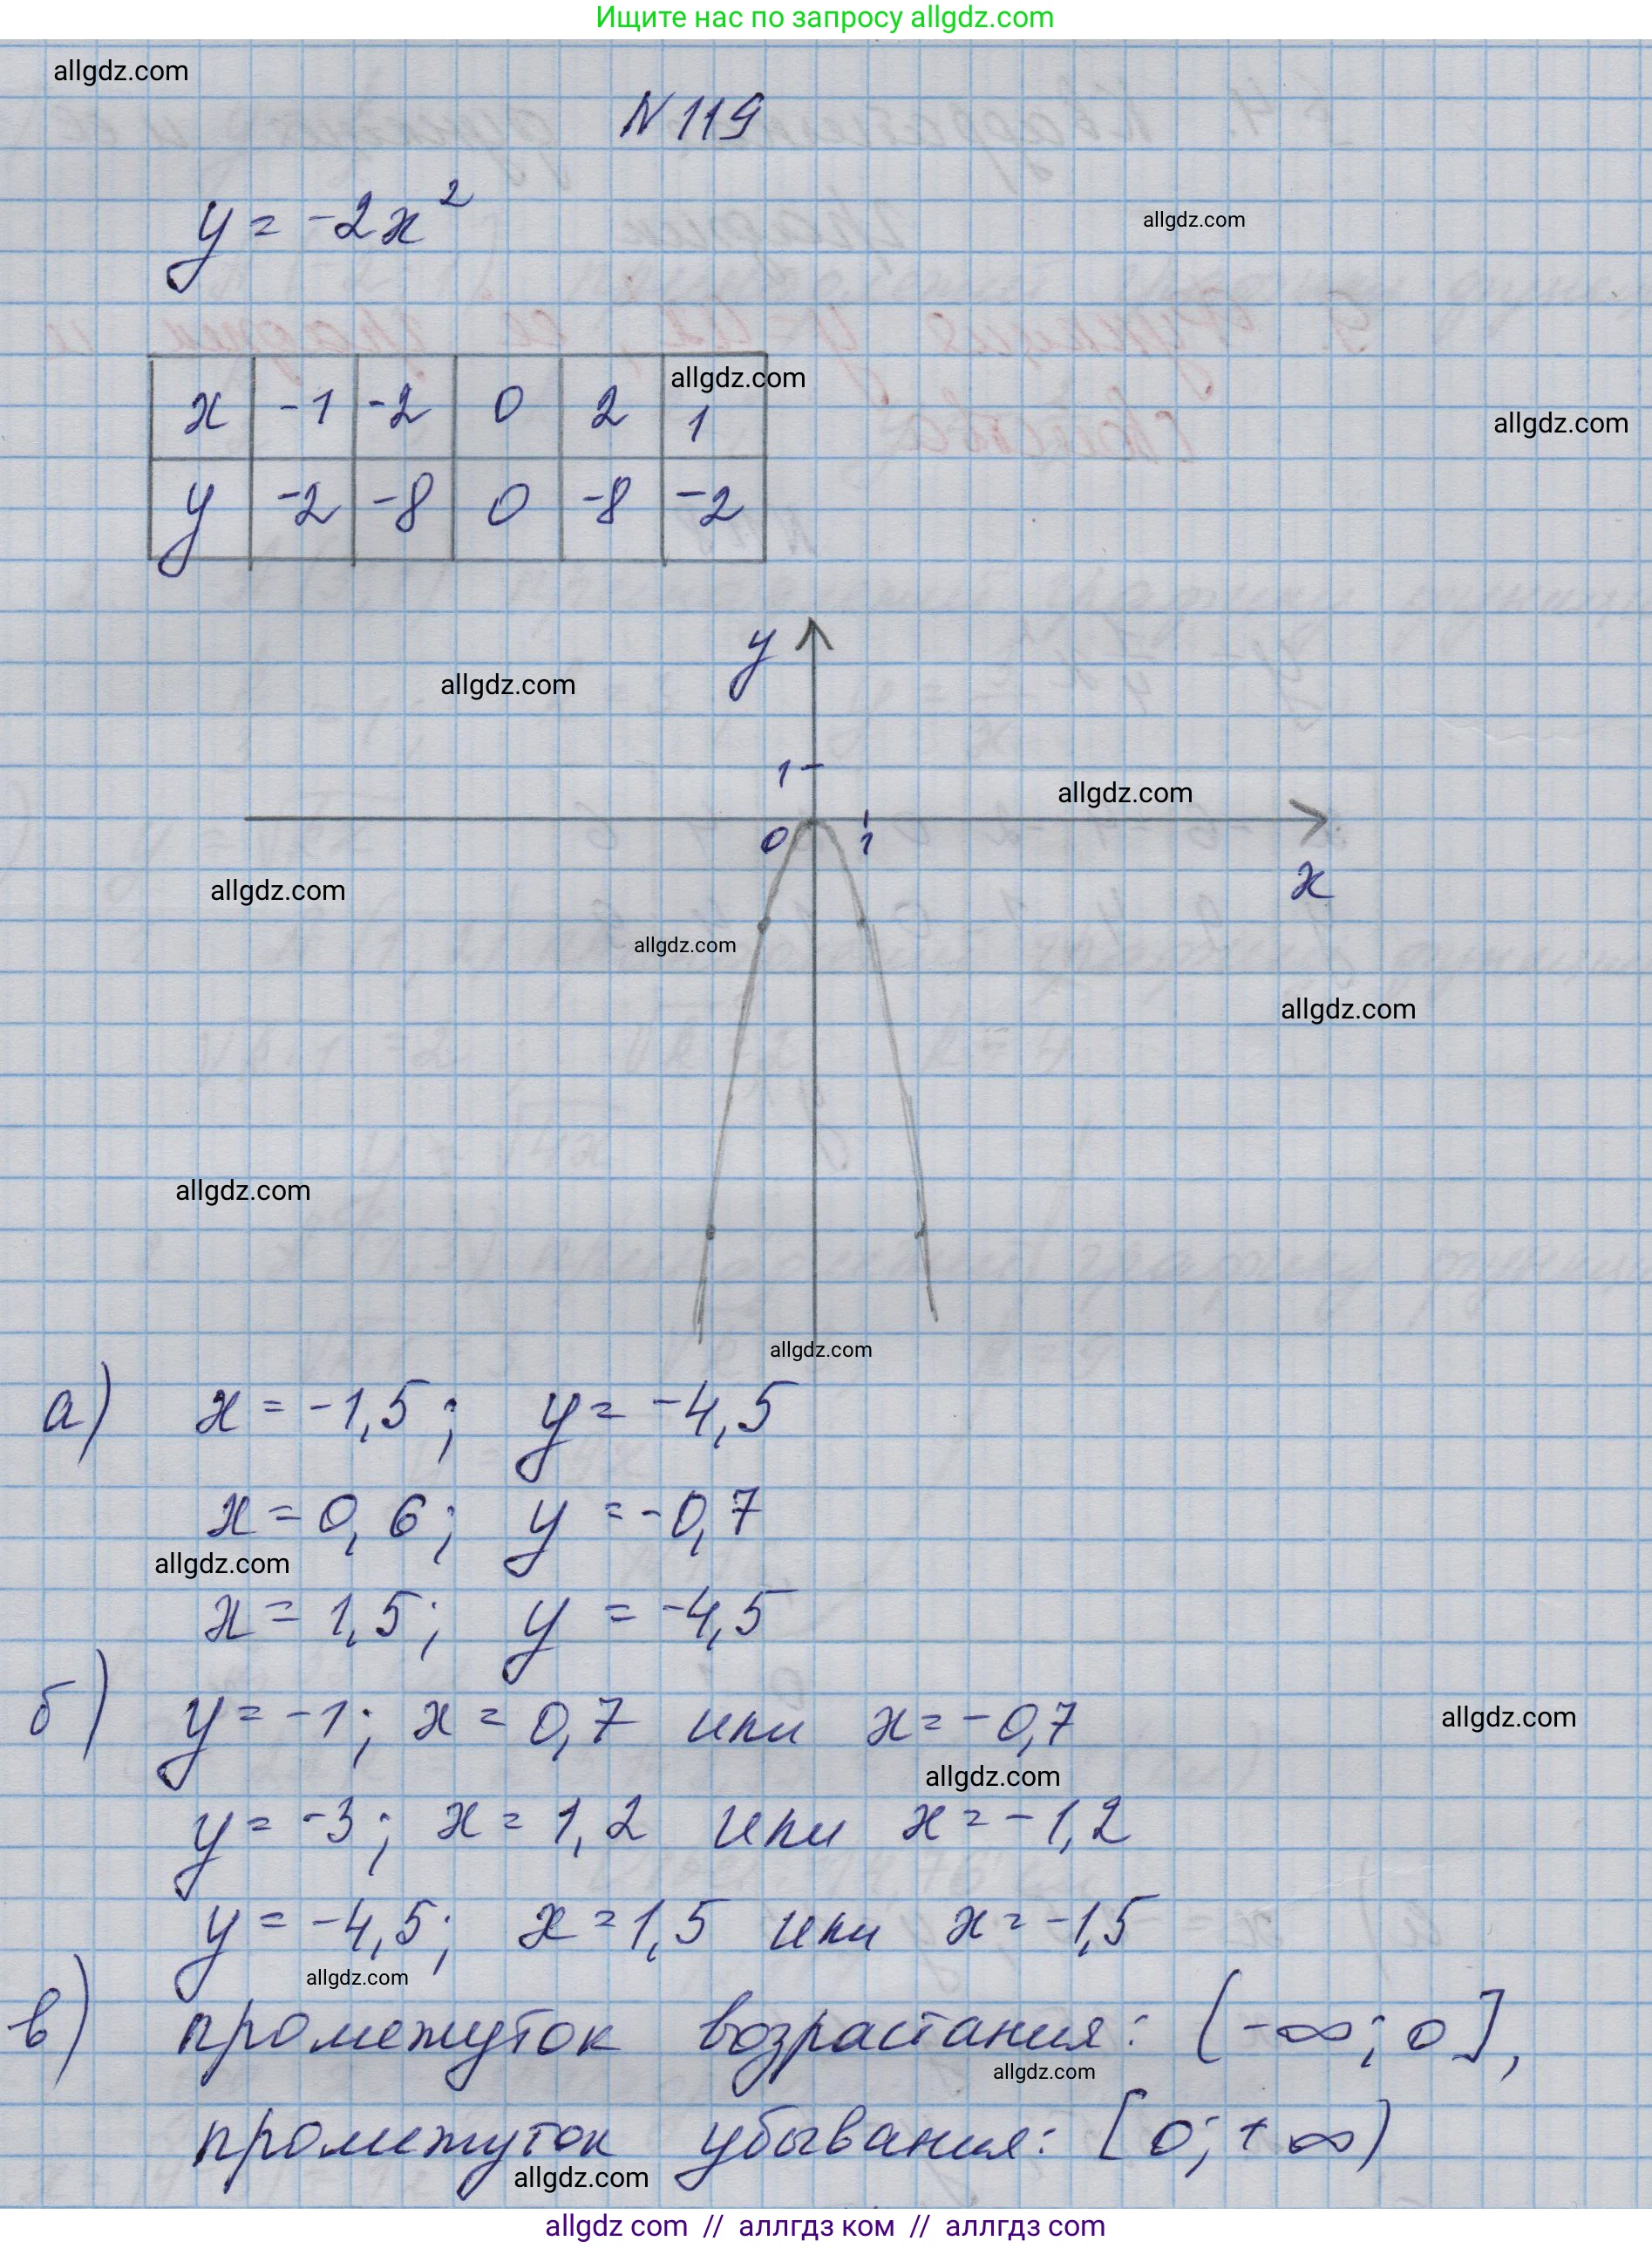 Ищите нас по запросу allgdz.com
allgdz.com
N 119
y = -2x²
allgdz.com
x -1 -2 0 2 1
allgdz.com
allgdz.com
y -2 -8 0 -8 -2
y
allgdz.com
1
allgdz.com
0 1
x
allgdz.com
allgdz.com
allgdz.com
allgdz.com
allgdz.com
а) x = -1,5; y = -4,5
x = 0,6; y = -0,7
allgdz.com
x = 1,5; y = -4,5
б) y = -1; x = 0,7 или x = -0,7
allgdz.com
allgdz.com
y = -3; x = 1,2 или x = -1,2
y = -4,5; x = 1,5 или x = -1,5
allgdz.com
в) промежуток возрастания: (-∞; 0],
allgdz.com
промежуток убывания: [0; +∞)
allgdz.com
allgdz com // аллгдз ком // аллгдз com